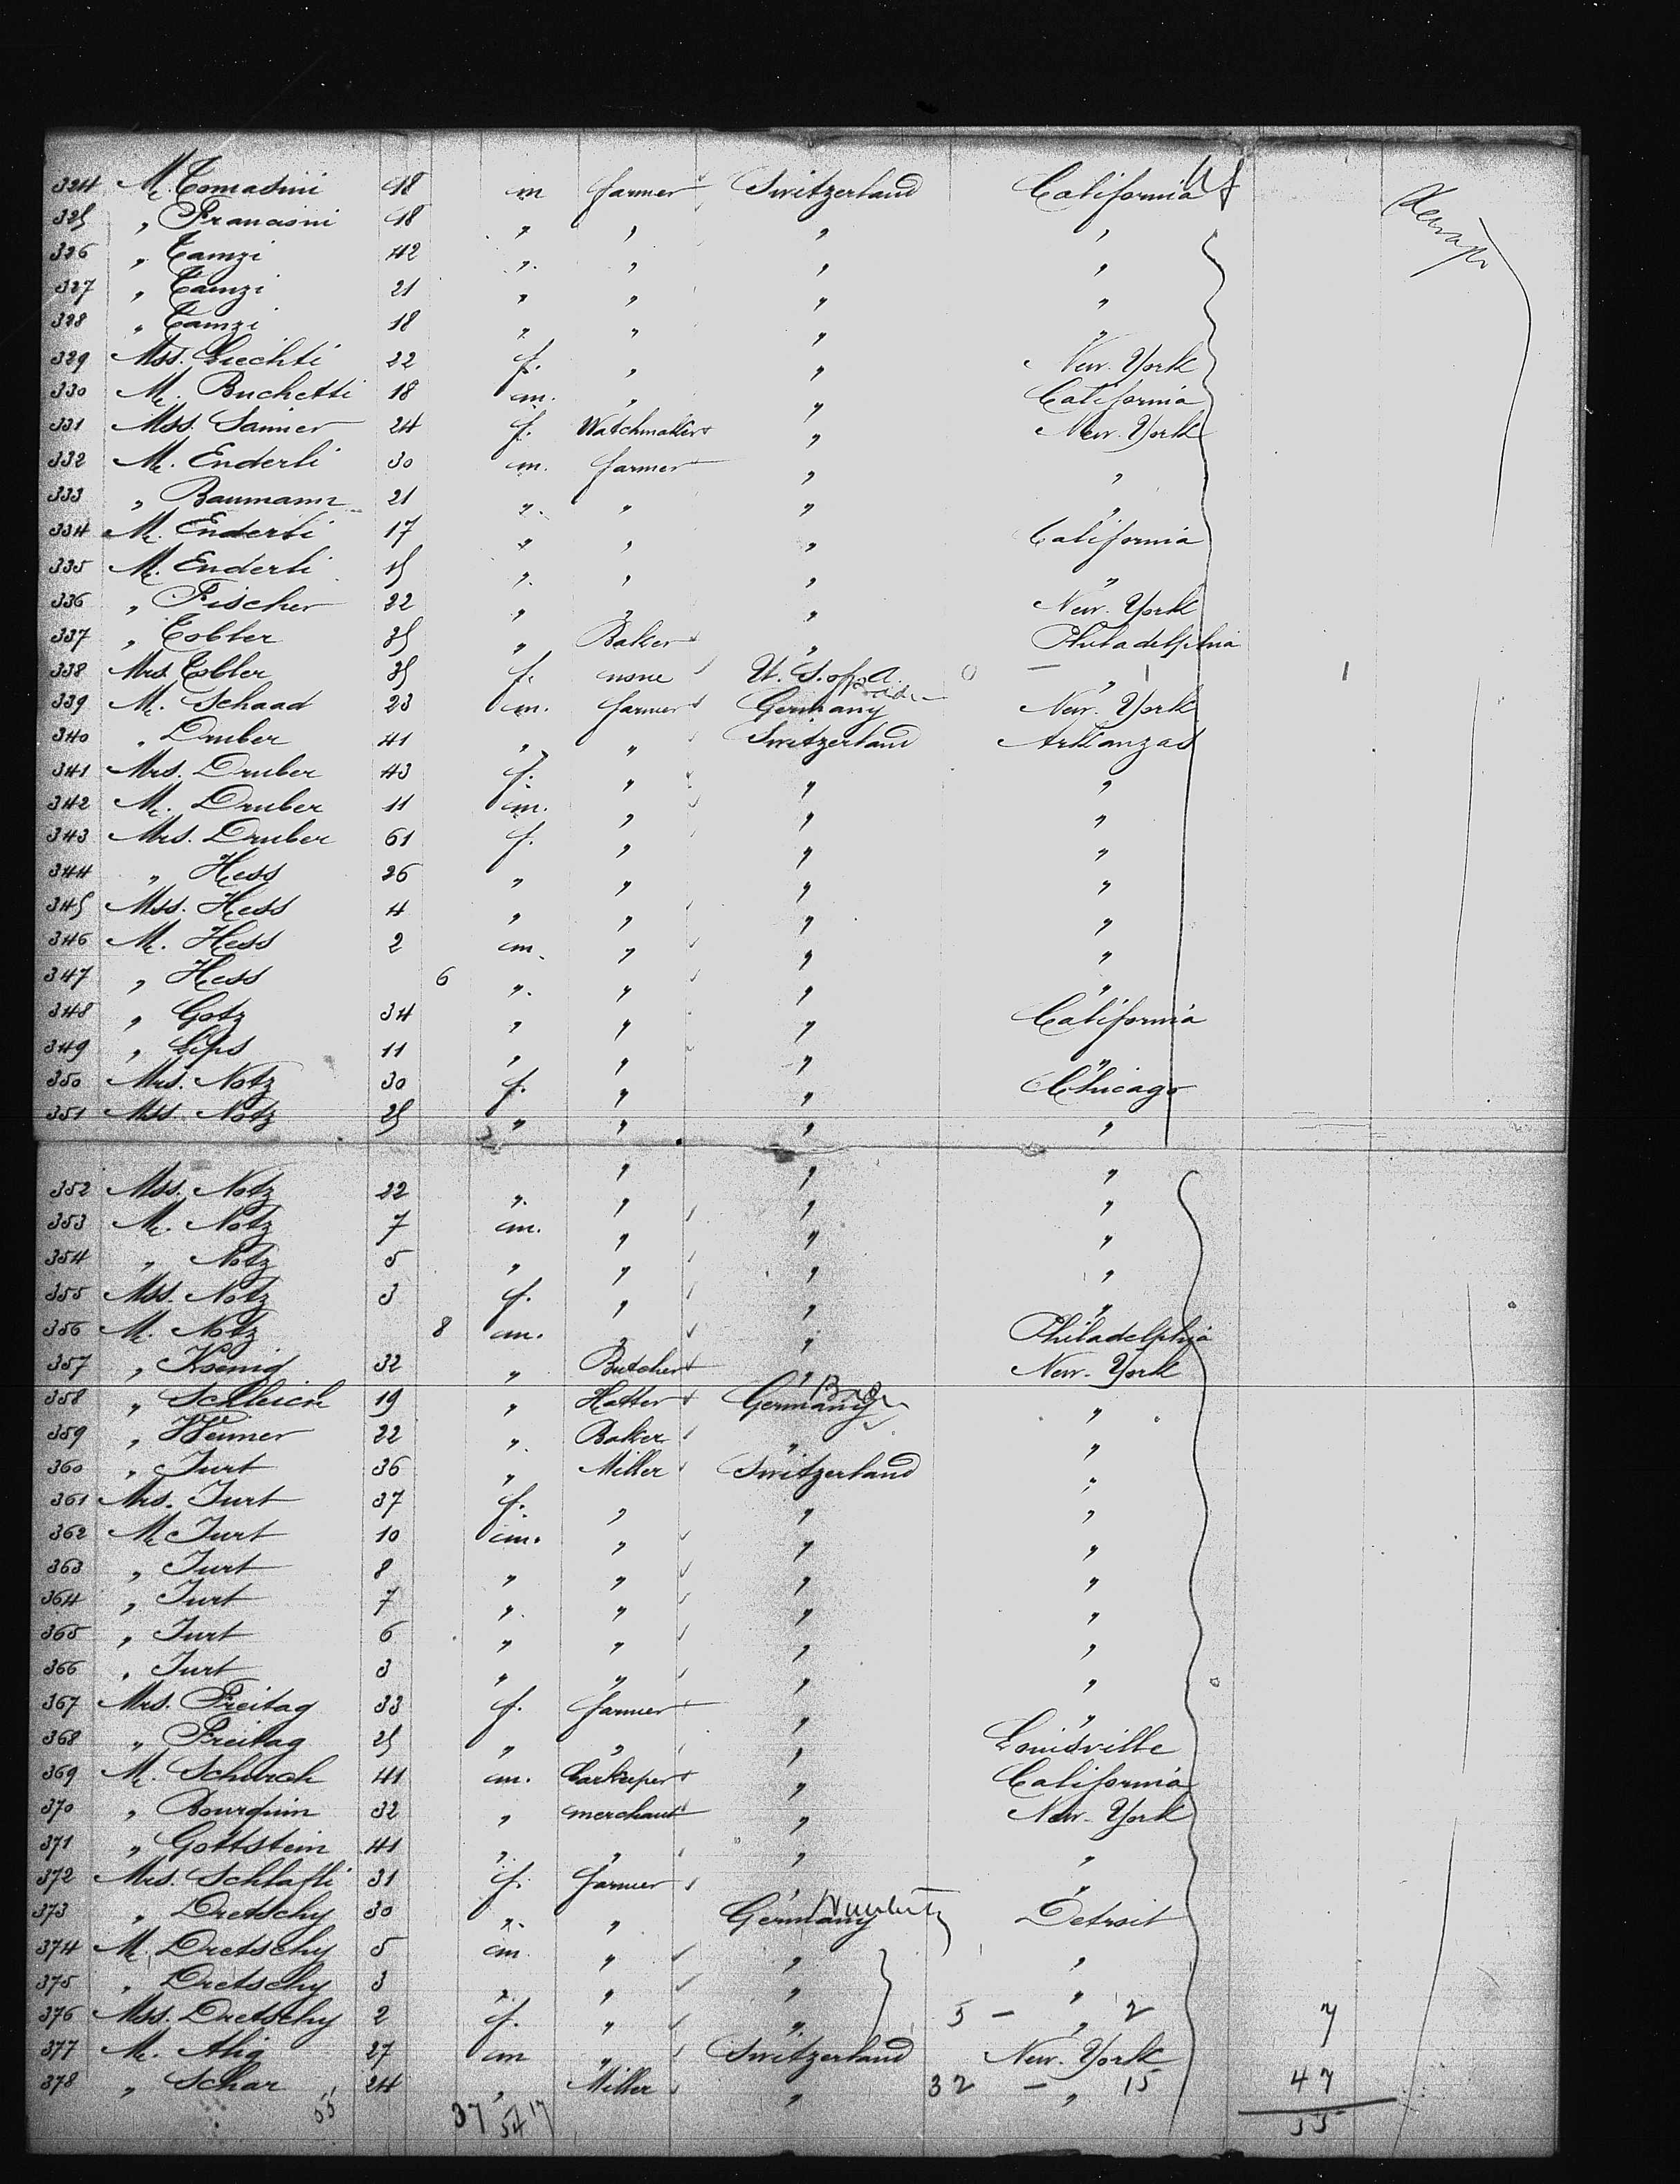 324 M. Tomasini 18 m farmer Switzerland California
325 " Francioni 18 " " " "
326 " Tamzi 42 " " " "
327 " Tamzi 21 " " " "
328 " Tamzi 18 " " " "
329 Mss. Liechti 22 f. " " New-York
330 M. Buchetti 18 m. " " California
331 Mss. Sanner 24 f. Watchmaker " New-York
332 M. Enderli 30 m. farmer " "
333 " Baumann 21 " " " "
334 M. Enderli 17 " " " California
335 M. Enderli 15 " " " "
336 " Fischer 22 " " " New-York
337 " Tobler 35 " Baker " Philadelphia
338 Mrs. Tobler 35 f. none U. S. of A. 0 — " 1 1
339 M. Schaad 23 m. farmer Germany New-York
340 " Druber 41 " " Switzerland Arkanzas
341 Mrs. Druber 43 f. " " "
342 M. Druber 11 m. " " "
343 Mrs. Druber 61 f. " " "
344 " Hess 26 " " " "
345 Mss. Hess 4 " " " "
346 M. Hess 2 m. " " "
347 " Hess 6 " " " "
348 " Gotz 34 " " " California
349 " Lips 11 " " " "
350 Mrs. Notz 30 f. " " Chicago
351 Mss. Notz 25 " " " "
352 Mss. Notz 22 " " " "
353 M. Notz 7 m. " " "
354 " Notz 5 " " " "
355 Mss. Notz 3 f. " " "
356 M. Notz 8 m. " " Philadelphia
357 " Koenig 32 " Butcher " New-York
358 " Schleich 19 " Hatter Germany "
359 " Weimer 22 " Baker " "
360 " Jurt 36 " Miller Switzerland "
361 Mrs. Jurt 37 f. " " "
362 M. Jurt 10 m. " " "
363 " Jurt 8 " " " "
364 " Jurt 7 " " " "
365 " Jurt 6 " " " "
366 " Jurt 3 " " " "
367 Mrs. Freitag 33 f. farmer " "
368 " Freitag 25 " " " Louisville
369 M. Schurch 41 m. barkeeper " California
370 " Bourquin 32 " merchant " New-York
371 " Gottstein 41 " " " "
372 Mrs. Schlafli 31 f. farmer " "
373 " Dretschy 30 " " Germany Detroit
374 M. Dretschy 5 m " " "
375 " Dretschy 3 " " " "
376 Mss. Dretschy 2 f. " " 5 — " 2 7
377 M. Alig 27 m " Switzerland New-York
378 " Schar 24 " Miller " 32 — " 15 47
55 37 54 17 55